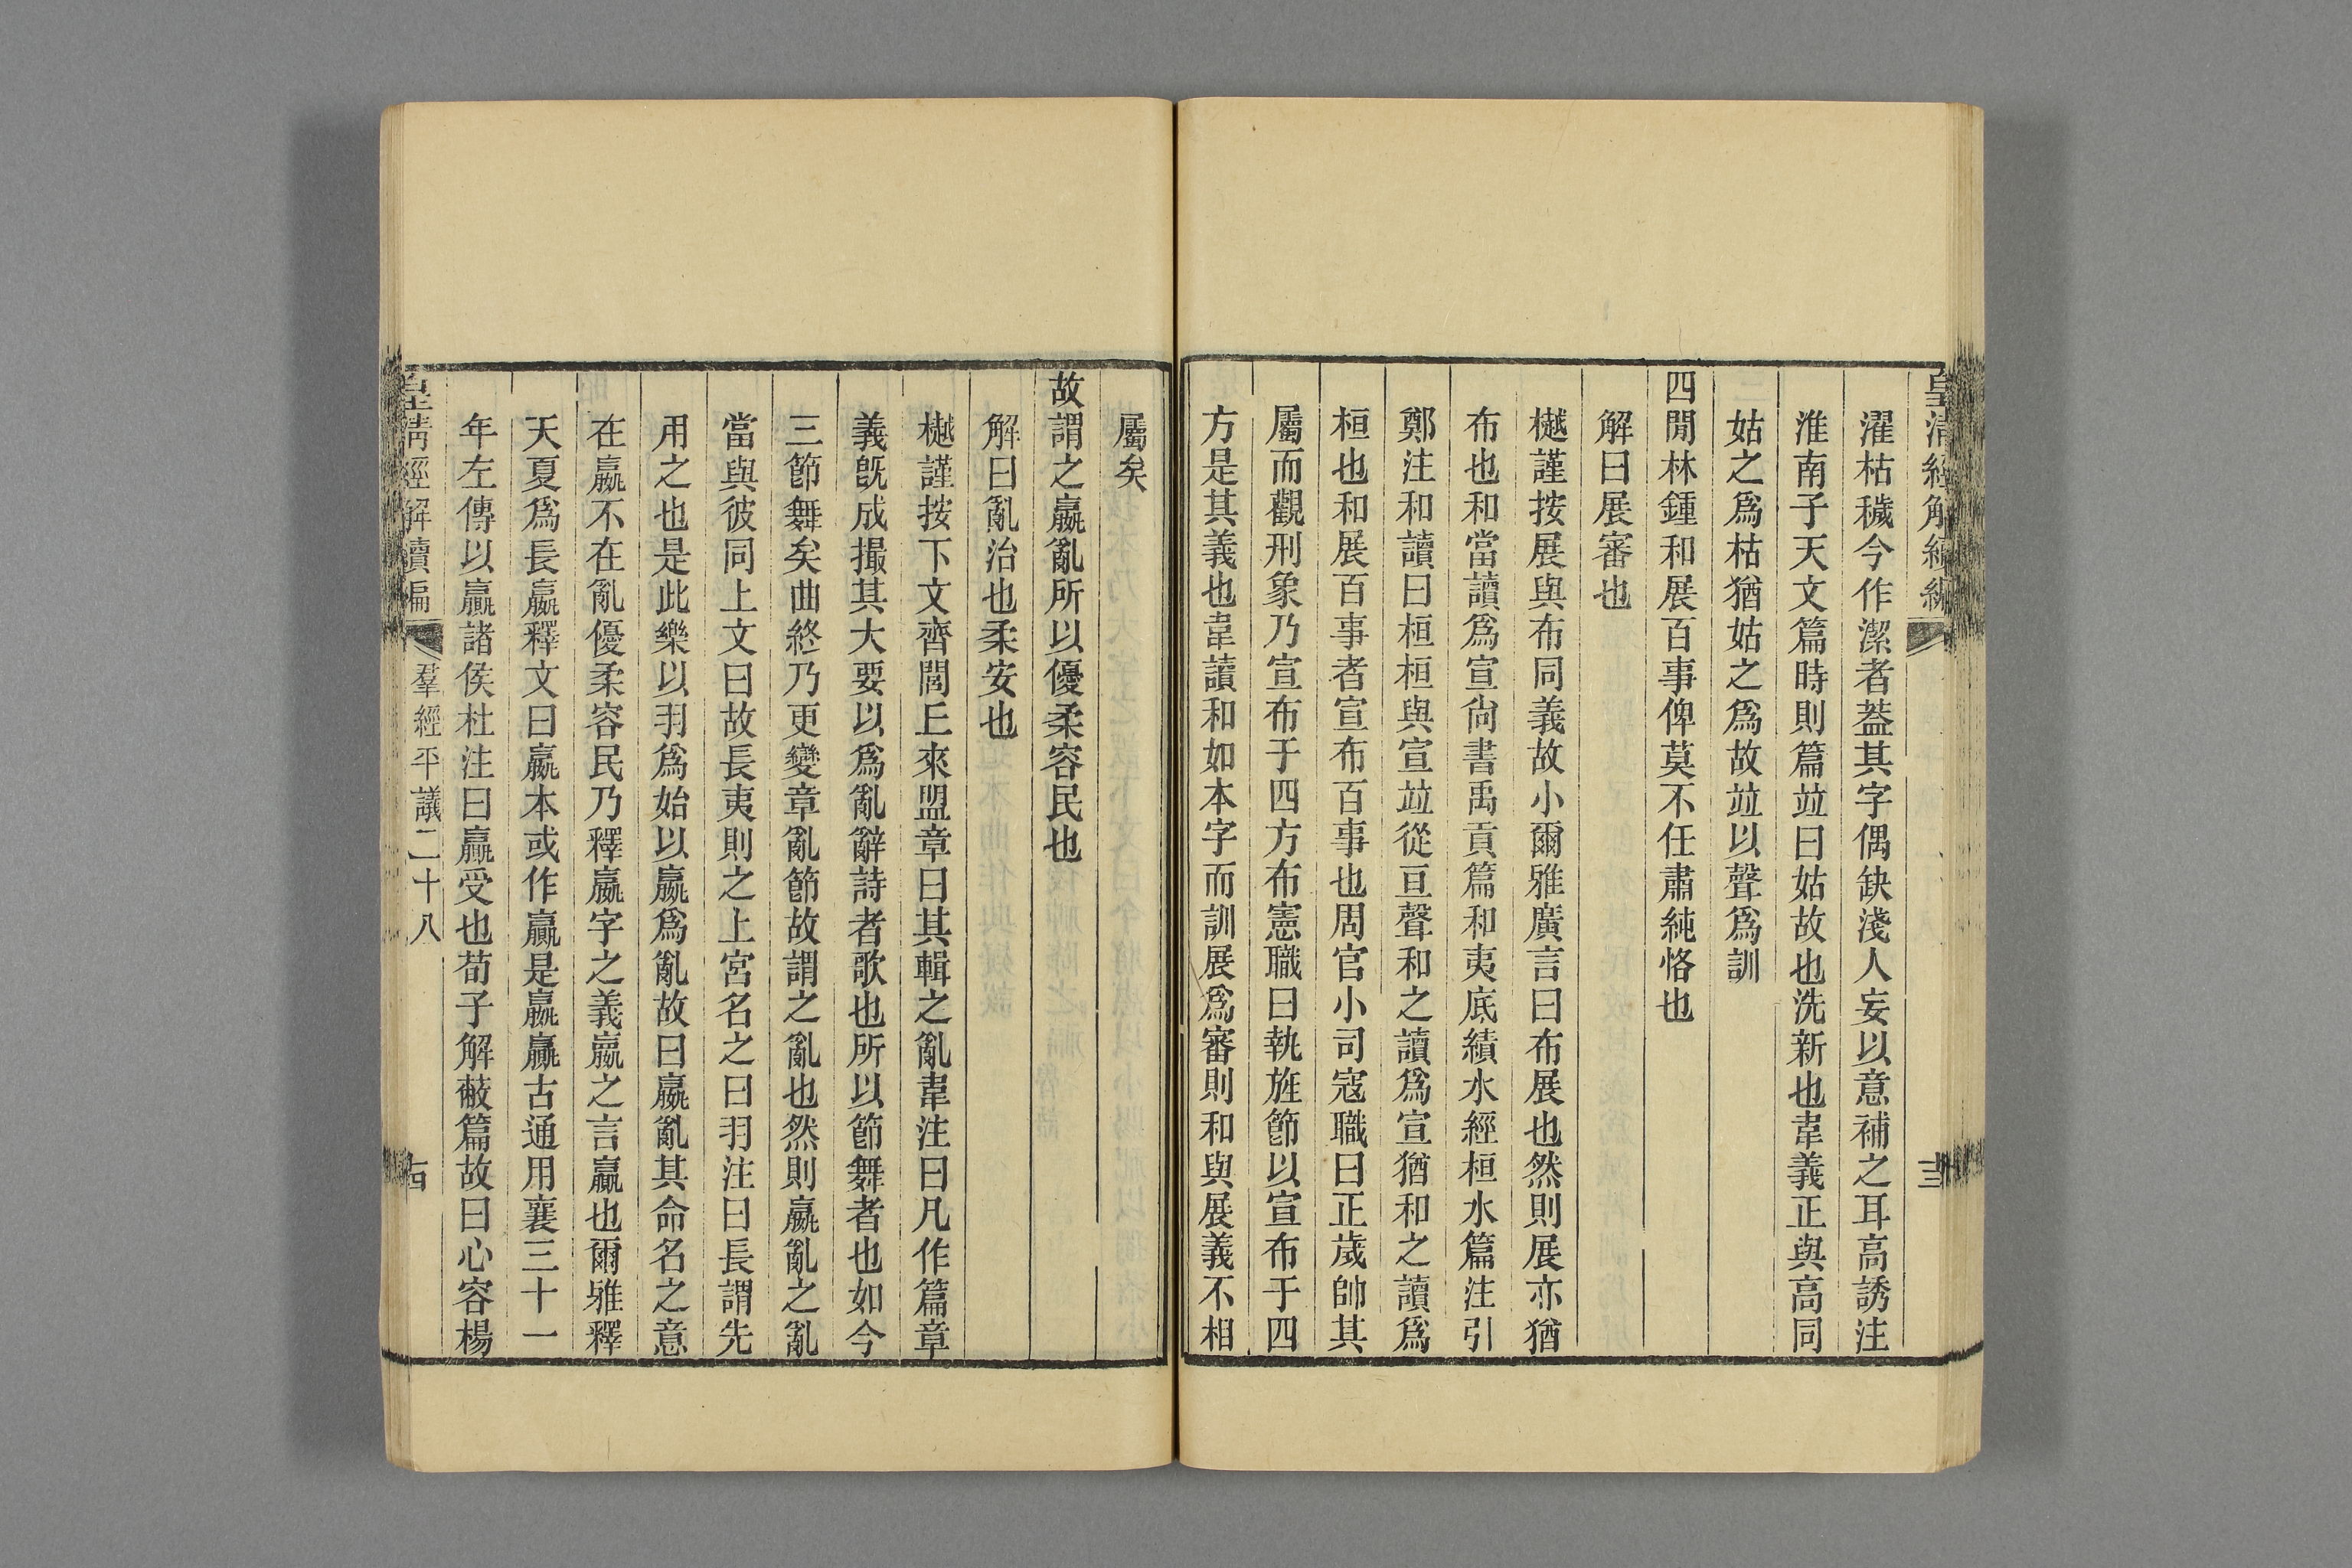 皇清經解續編
三
濯枯穢今作潔者蓋其字偶缺淺人妄以意補之耳高誘注
淮南子天文篇時則篇竝曰姑故也洗新也韋義正與高同
姑之爲枯猶姑之爲故竝以聲爲訓
四閒林鍾和展百事俾莫不任肅純恪也
解曰展審也
樾謹按展與布同義故小爾雅廣言曰布展也然則展亦猶
布也和當讀爲宣尙書禹貢篇和夷厎績水經桓水篇注引
鄭注和讀曰桓桓與宣竝從亘聲和之讀爲宣猶和之讀爲
桓也和展百事者宣布百事也周官小司寇職曰正歲帥其
屬而觀刑象乃宣布于四方布憲職曰執旌節以宣布于四
方是其義也韋讀和如本字而訓展爲審則和與展義不相
屬矣
故謂之嬴亂所以優柔容民也
解曰亂治也柔安也
樾謹按下文齊閭丘來盟章曰其輯之亂韋注曰凡作篇章
義既成撮其大要以爲亂辭詩者歌也所以節舞者也如今
三節舞矣曲終乃更變章亂節故謂之亂也然則嬴亂之亂
當與彼同上文曰故長夷則之上宮名之曰羽注曰長謂先
用之也是此樂以羽爲始以嬴爲亂故曰嬴亂其命名之意
在嬴不在亂優柔容民乃釋嬴字之義嬴之言贏也爾雅釋
天夏爲長嬴釋文曰嬴本或作贏是嬴贏古通用襄三十一
年左傳以贏諸侯杜注曰贏受也荀子解蔽篇故曰心容楊
皇清經解續編
羣經平議二十八
古